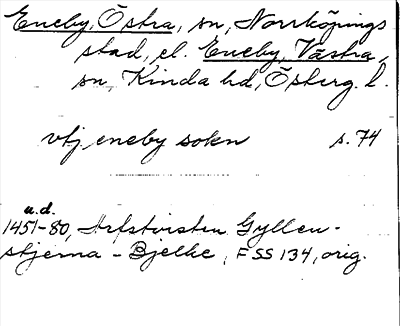 Eneby, Östra, sn, Norrköpings
stad, el. Eneby, Västra,
sn, Kinda hd, Österg. l.
vtj eneby sokn s. 74
u.d.
1451-80, Arfstvisten Gyllen-
stjerna - Bjelke, FSS 134, orig.